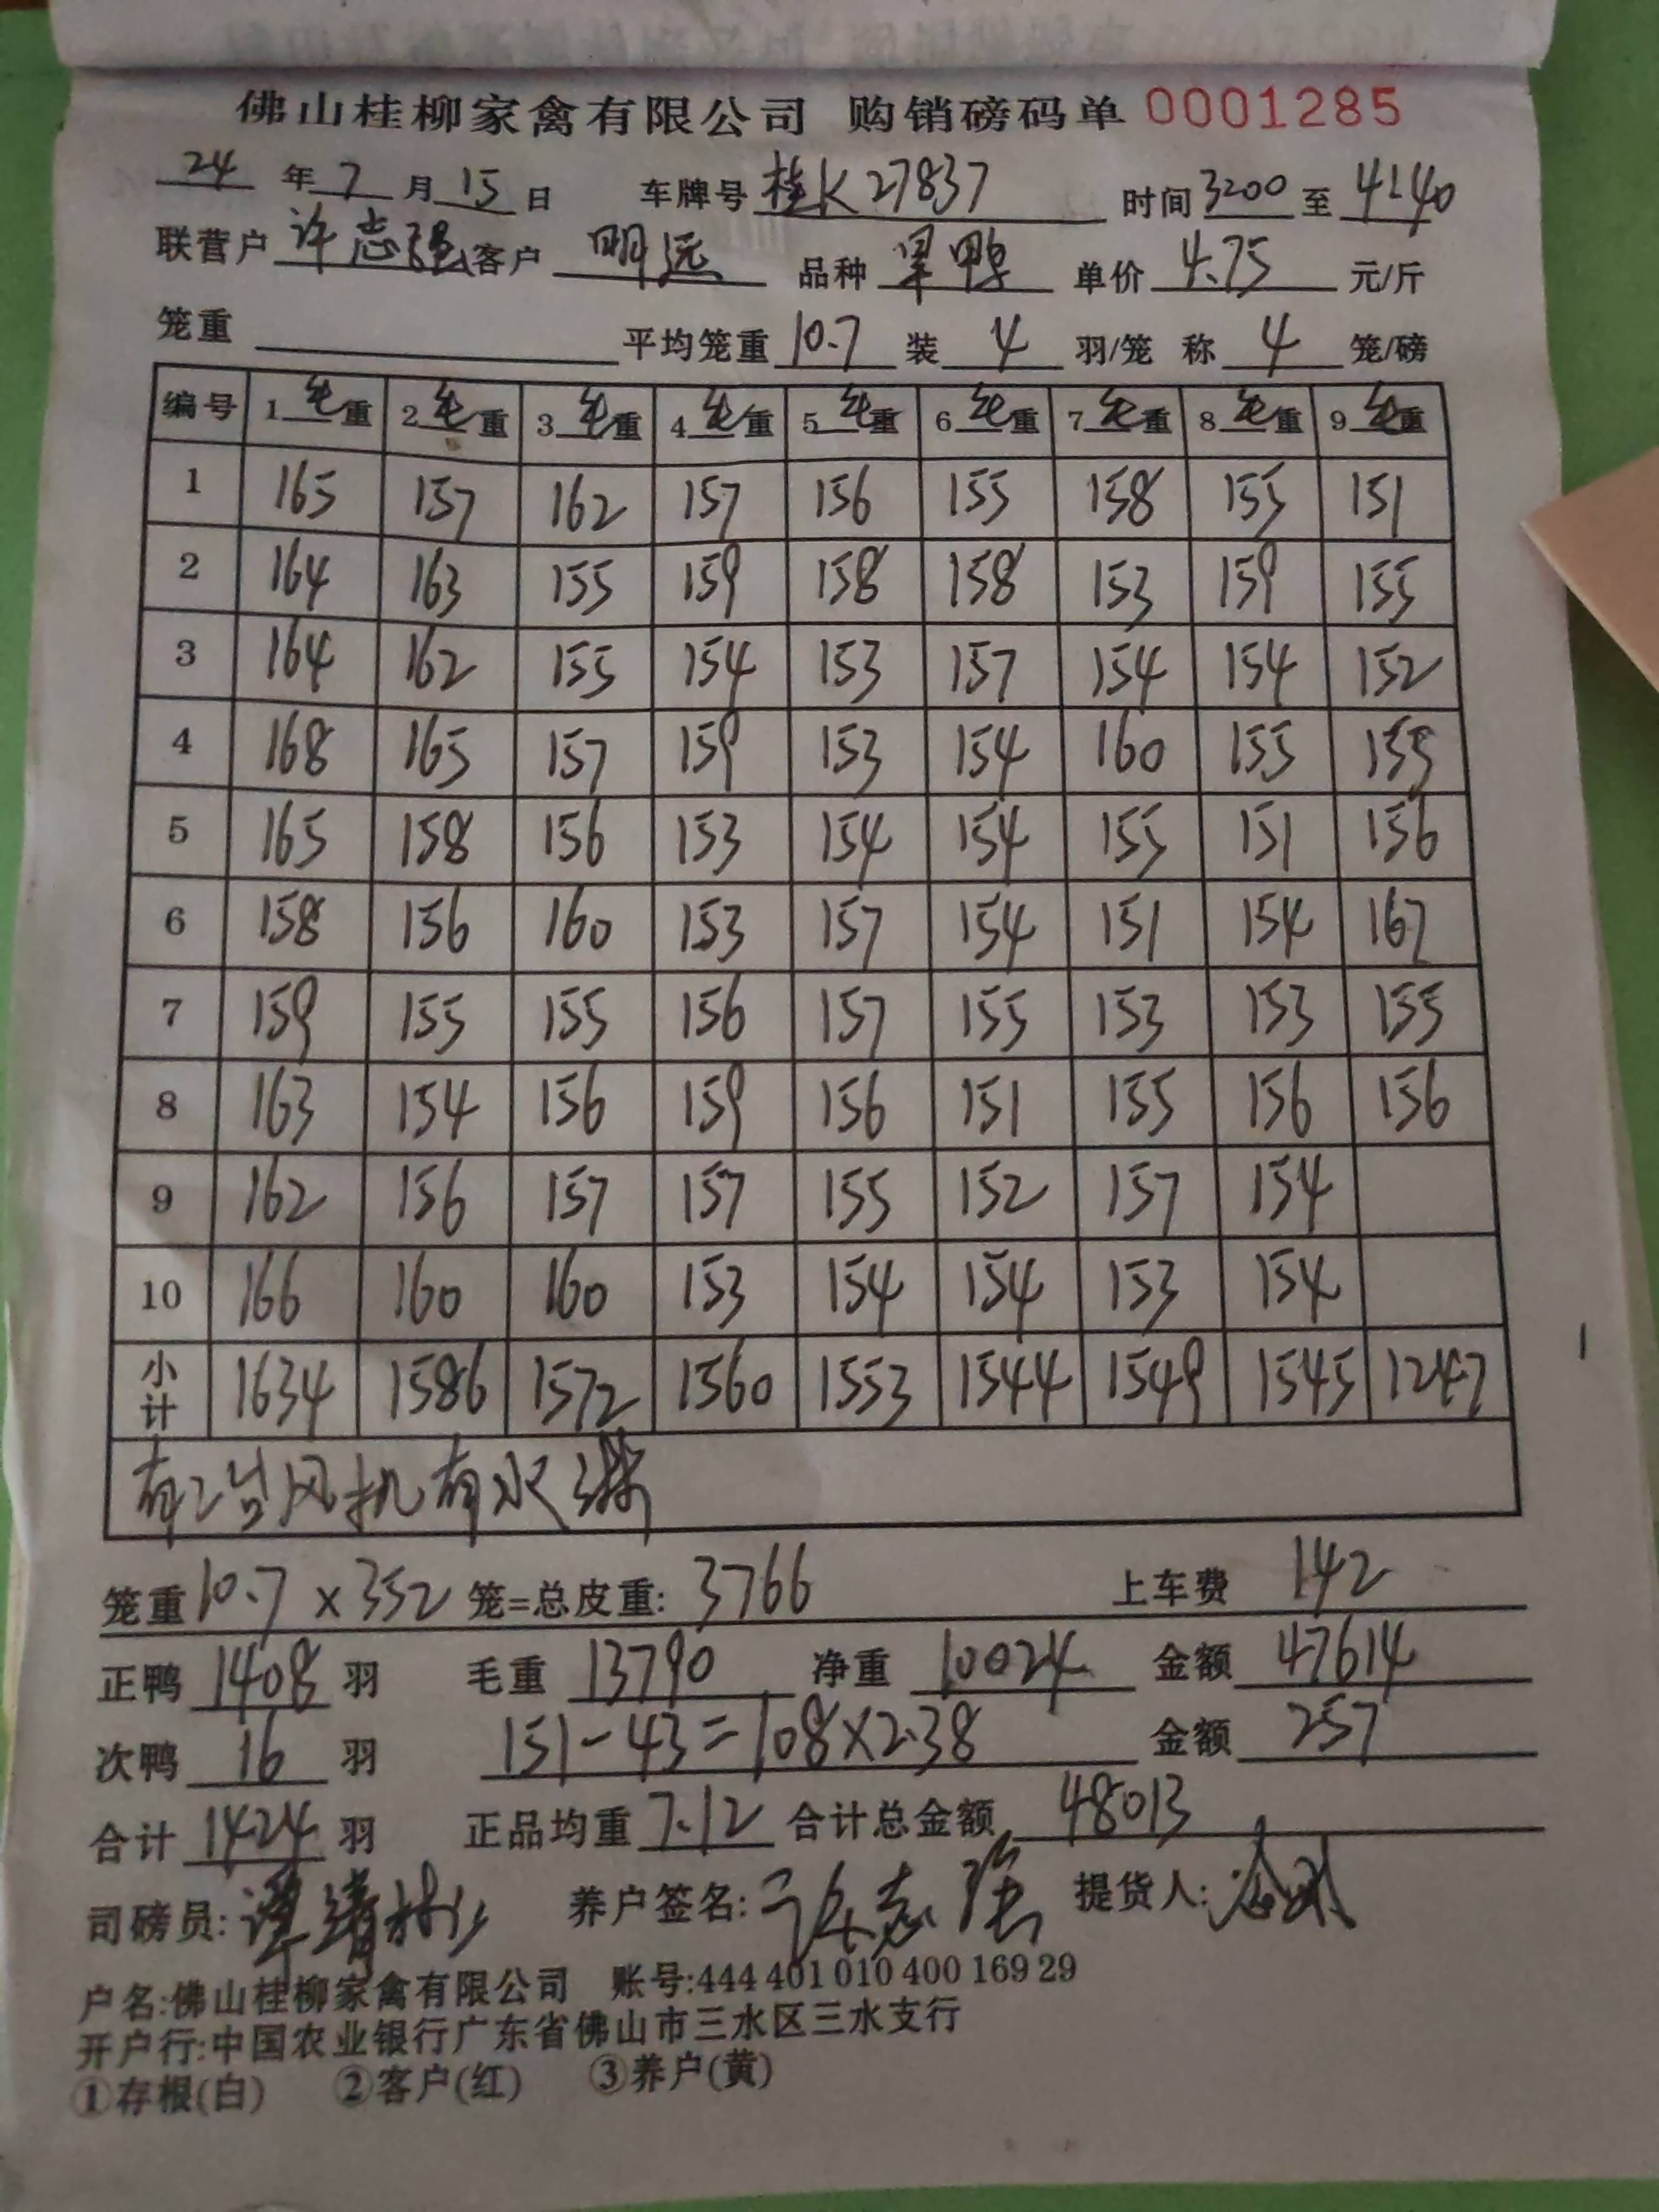 佛山桂柳家禽有限公司 购销磅码单 0001285
24 年 7 月 15 日 车牌号 桂K27837 时间 3200 至 4240
联营户 许志强 客户 明远 品种 旱鸭 单价 4.75 元/斤
笼重 平均笼重 10.7 装 4 羽/笼 称 4 笼/磅
编号 1 毛重 2 毛重 3 毛重 4 毛重 5 毛重 6 毛重 7 毛重 8 毛重 9 毛重
1 165 157 162 157 156 155 158 155 151
2 164 163 155 159 158 158 153 159 155
3 164 162 155 154 153 157 154 154 152
4 168 165 157 159 153 154 160 155 155
5 165 158 156 153 154 154 155 151 156
6 158 156 160 153 157 154 151 154 167
7 159 155 155 156 157 155 153 153 155
8 163 154 156 159 156 151 155 156 156
9 162 156 157 157 155 152 157 154
10 166 160 160 153 154 154 153 154
小计 1634 1586 1572 1560 1553 1544 1549 1545 1247
有2台风机有水淋
笼重 10.7 × 352 笼=总皮重: 3766 上车费 142
正鸭 1408 羽 毛重 13790 净重 10024 金额 47614
次鸭 16 羽 151-43=108×2.38 金额 257
合计 1424 羽 正品均重 7.12 合计总金额 48013
司磅员: 养户签名: 许志强 提货人:
户名:佛山桂柳家禽有限公司 账号:444 401 010 400 169 29
开户行:中国农业银行广东省佛山市三水区三水支行
①存根(白) ②客户(红) ③养户(黄)